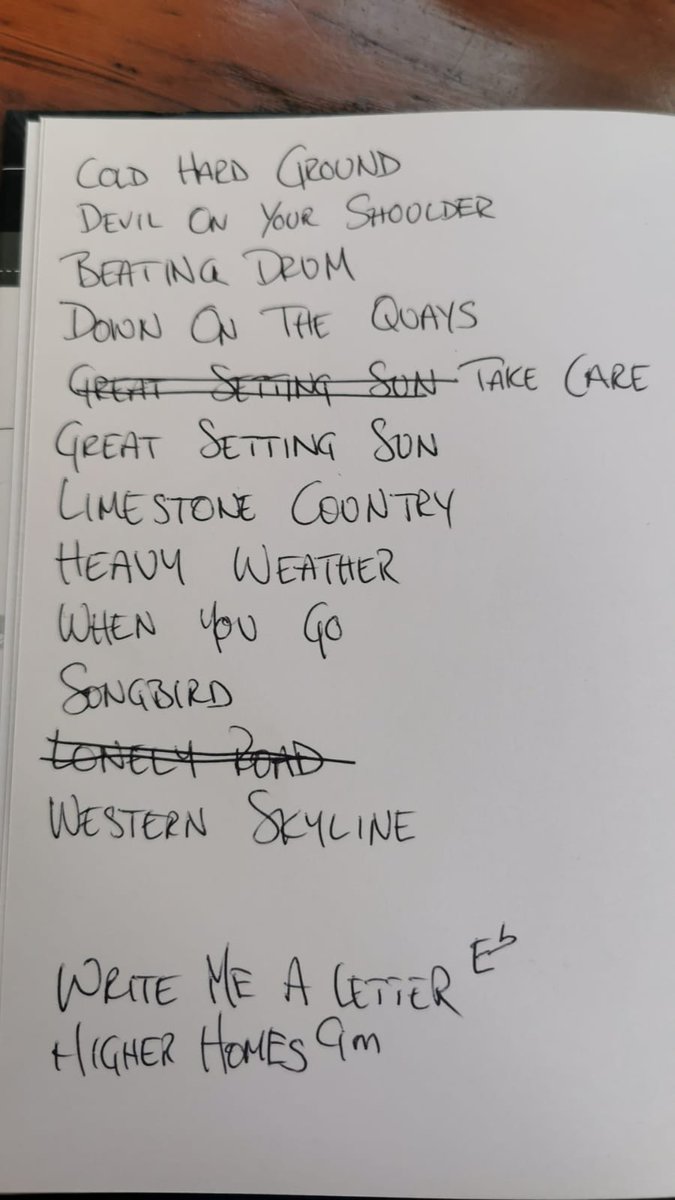 COLD HARD GROUND
DEVIL ON YOUR SHOULDER
BEATING DRUM
DOWN ON THE QUAYS
GREAT SETTING SUN TAKE CARE
GREAT SETTING SUN
LIMESTONE COUNTRY
HEAVY WEATHER
WHEN YOU GO
SONGBIRD
LONELY ROAD
WESTERN SKYLINE
WRITE ME A LETTER E♭
HIGHER HOMES Am